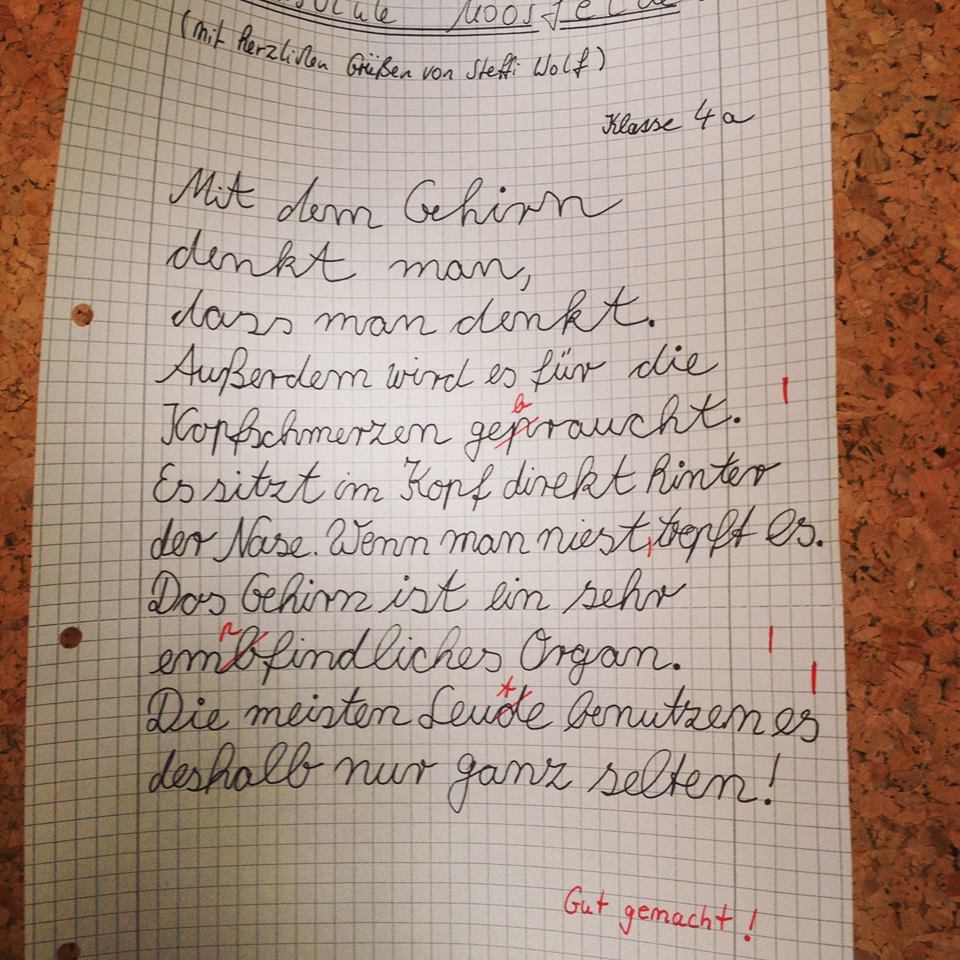 (mit herzlichen Grüßen von Steffi Wolf)
Klasse 4a
Mit dem Gehirn
denkt man,
dass man denkt.
Außerdem wird es für die
b
Kopfschmerzen gepraucht.
Es sitzt im Kopf direkt hinter
der Nase. Wenn man niest, tropft es.
Das Gehirn ist ein sehr
embfindliches Organ.
t
Die meisten Leude benutzen es
deshalb nur ganz selten!
Gut gemacht!